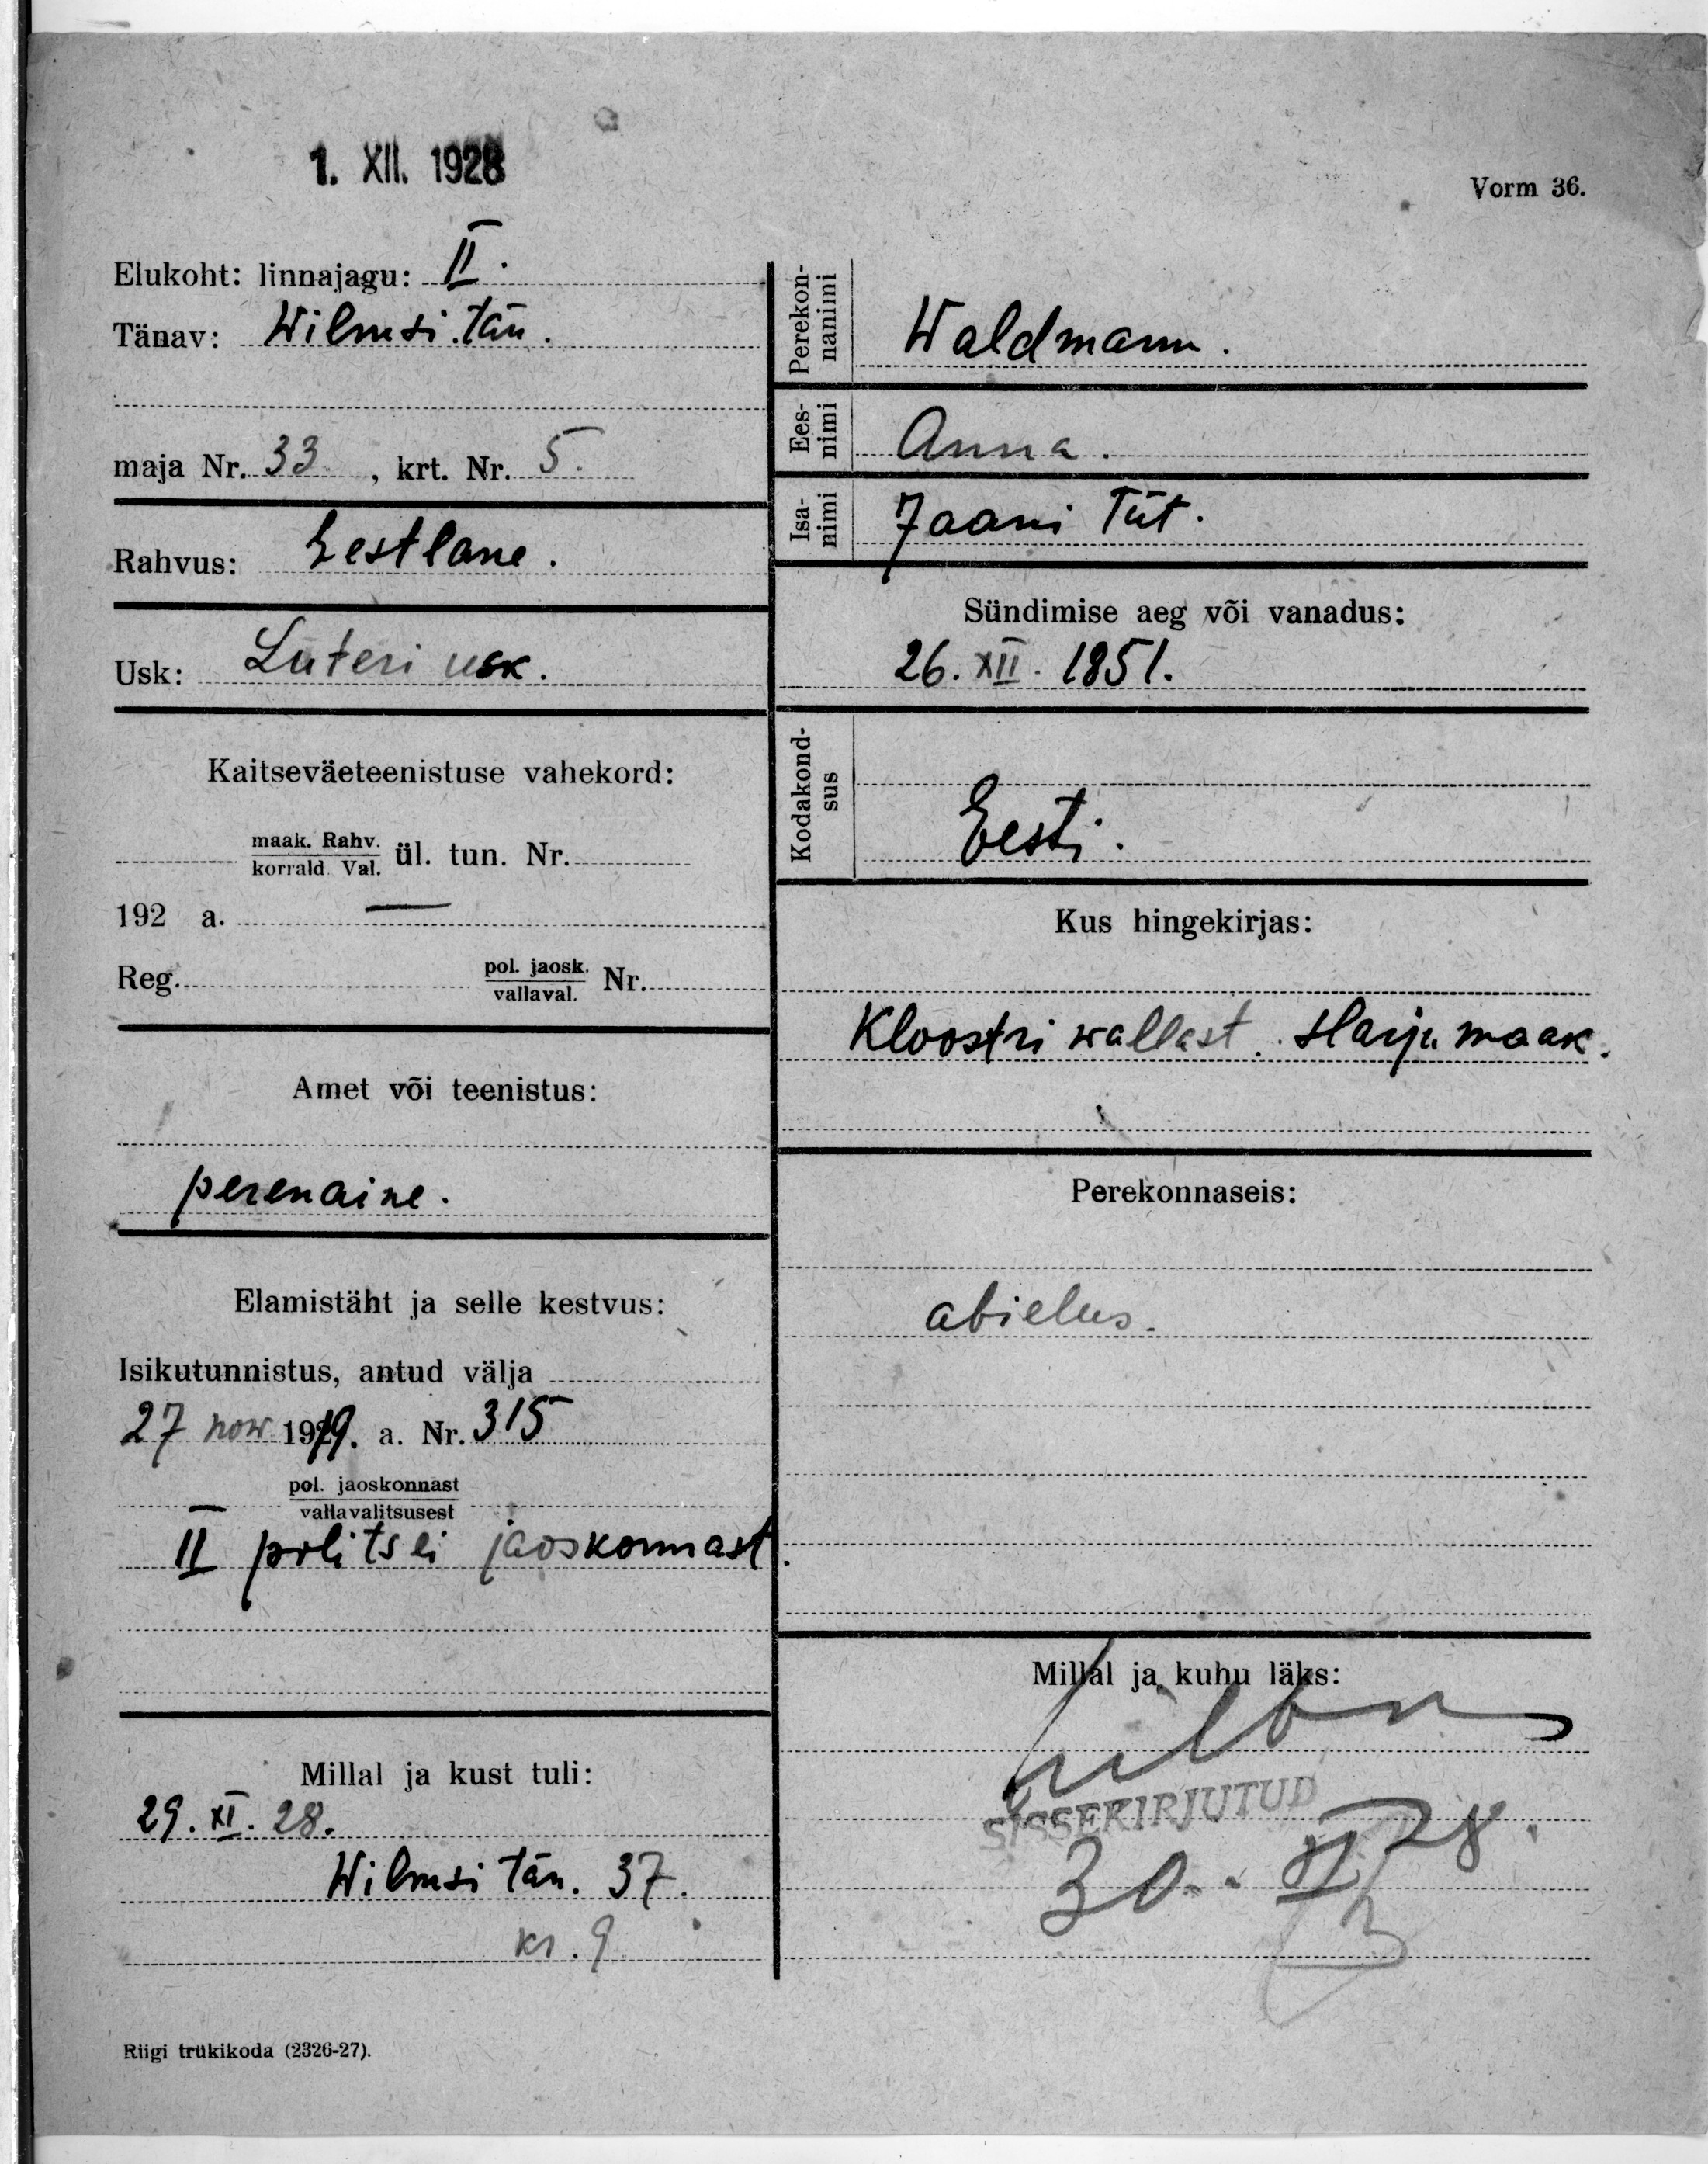 1. XII. 1928
Vorm 36.
Elukoht: linnajagu: II.
Tänav: Wilmsi.tän.
maja Nr. 33., krt. Nr. 5.
Rahvus: Eestlane.
Usk: Luteri usk.
Kaitseväeteenistuse vahekord:
maak. Rahv.
korrald. Val. ül. tun. Nr.
192 a. —
Reg. pol. jaosk. Nr.
vallaval.
Amet või teenistus:
perenaine.
Elamistäht ja selle kestvus:
Isikutunnistus, antud välja
27 now 1919. a. Nr. 315
pol. jaoskonnast
vallavalitsusest
II politsei jaoskonnast.
Millal ja kust tuli:
29. XI. 28.
Wilmsi tän. 37.
kr. 9
Perekon-
nanimi
Waldmann.
Ees-
nimi
Anna.
Isa-
nimi
Jaani Tüt.
Sündimise aeg või vanadus:
26. XII. 1851.
Kodakond-
sus
Eesti.
Kus hingekirjas:
Kloostri wallast. Harju maak.
Perekonnaseis:
abielus.
Millal ja kuhu läks:
SISSEKIRJUTUD
30. XI 28.
Riigi trükikoda (2326-27).